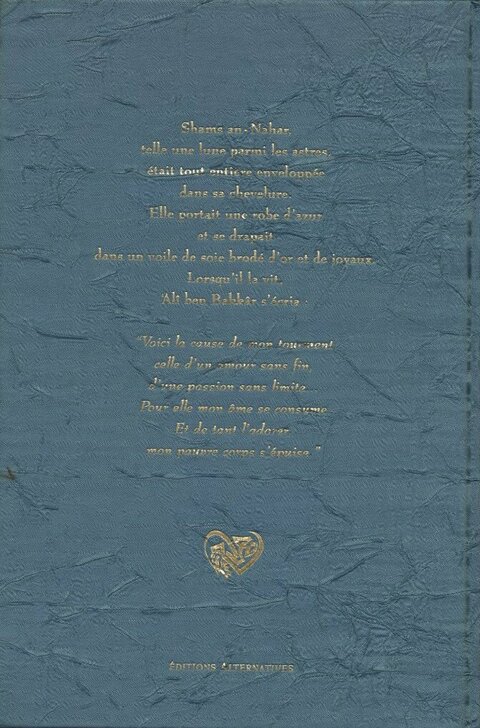 Shams an-Nahar,
telle une lune parmi les astres,
était tout entière enveloppée
dans sa chevelure.
Elle portait une robe d'azur
et se drapait
dans un voile de soie brodé d'or et de joyaux.
Lorsqu'il la vit,
'Ali ben Bakkâr s'écria :
"Voici la cause de mon tourment,
celle d'un amour sans fin,
d'une passion sans limite...
Pour elle mon âme se consume
Et de tant l'adorer
mon pauvre corps s'épuise."
ÉDITIONS ALTERNATIVES